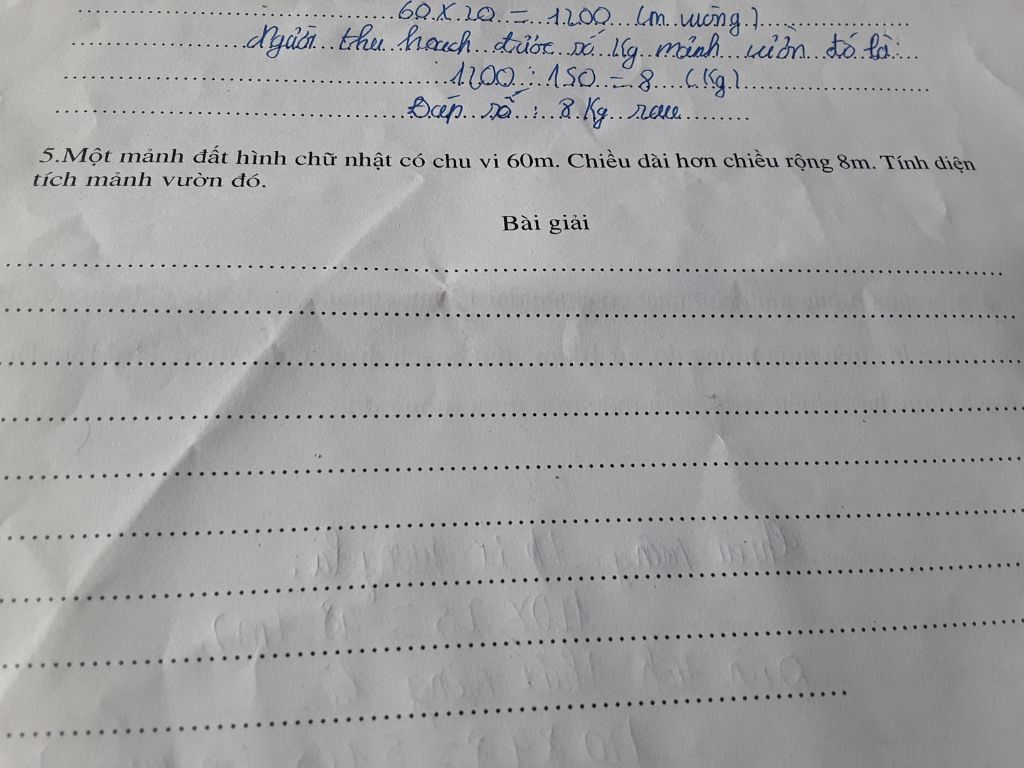 60 x 20 = 1200 (m vuông)
Người thu hoach được số kg mảnh vườn đó là:
1200 : 150 = 8 (kg)
Đáp số : 8 kg rau
5.Một mảnh đất hình chữ nhật có chu vi 60m. Chiều dài hơn chiều rộng 8m. Tính diện
tích mảnh vườn đó.
Bài giải